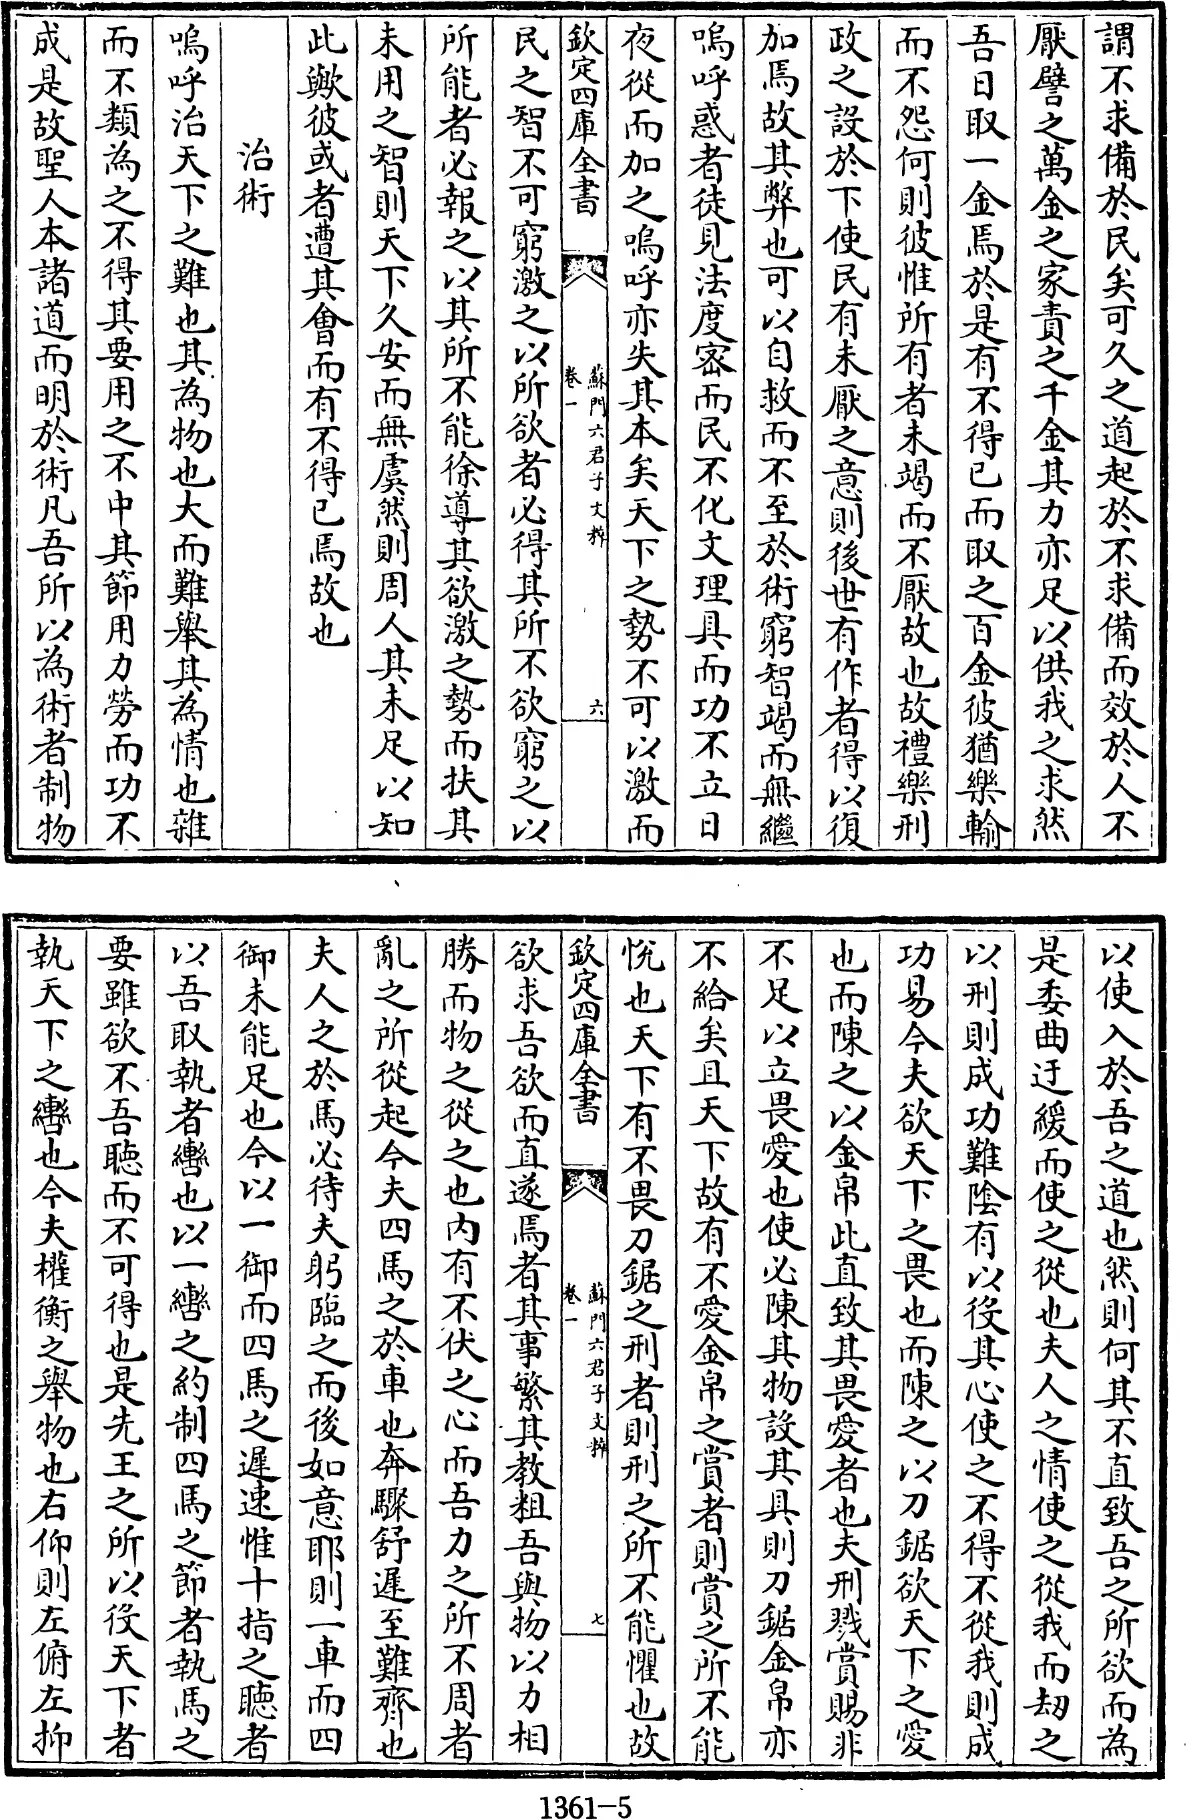 謂不求備於民矣可久之道起於不求備而效於人不
厭譬之萬金之家責之千金其力亦足以供我之求然
吾日取一金焉於是有不得已而取之百金彼猶樂輸
而不怨何則彼惟所有者未竭而不厭故也故禮樂刑
政之設於下使民有未厭之意則後世有作者得以復
加焉故其弊也可以自救而不至於術窮智竭而無繼
嗚呼惑者徒見法度密而民不化文理具而功不立日
夜從而加之嗚呼亦失其本矣天下之勢不可以激而
欽定四庫全書
蘇門六君子文粹
卷一
六
民之智不可窮激之以所欲者必得其所不欲窮之以
所能者必報之以其所不能徐導其欲激之勢而扶其
未用之智則天下久安而無虞然則周人其未足以知
此歟彼或者遭其會而有不得已焉故也
治術
嗚呼治天下之難也其為物也大而難舉其為情也雜
而不類為之不得其要用之不中其節用力勞而功不
成是故聖人本諸道而明於術凡吾所以為術者制物
以使入於吾之道也然則何其不直致吾之所欲而為
是委曲迂緩而使之從也夫人之情使之從我而刼之
以刑則成功難陰有以役其心使之不得不從我則成
功易今夫欲天下之畏也而陳之以刀鋸欲天下之愛
也而陳之以金帛此直致其畏愛者也夫刑戮賞賜非
不足以立畏愛也使必陳其物設其具則刀鋸金帛亦
不給矣且天下故有不愛金帛之賞者則賞之所不能
悅也天下有不畏刀鋸之刑者則刑之所不能懼也故
欽定四庫全書
蘇門六君子文粹
卷一
七
欲求吾欲而直遂焉者其事繁其教粗吾與物以力相
勝而物之從之也内有不伏之心而吾力之所不周者
亂之所從起今夫四馬之於車也奔驟舒遲至難齊也
夫人之於馬必待夫躬臨之而後如意耶則一車而四
御未能足也今以一御而四馬之遲速惟十指之聽者
以吾取執者轡也以一轡之約制四馬之節者執馬之
要雖欲不吾聽而不可得也是先王之所以役天下者
執天下之轡也今夫權衡之舉物也右仰則左俯左抑
1361-5